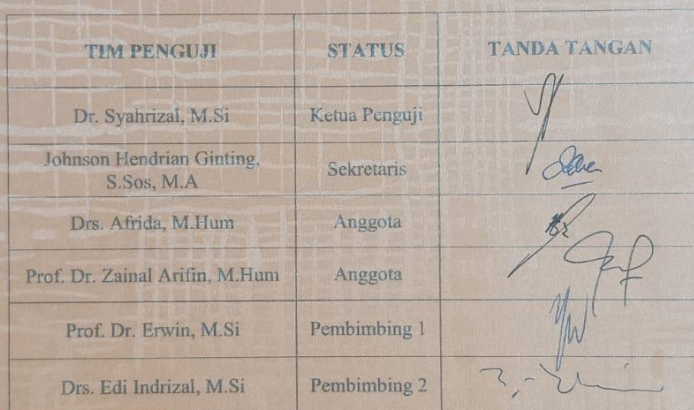 TIM PENGUJI STATUS TANDA TANGAN
Dr. Syahrizal, M.Si Ketua Penguji
Johnson Hendrian Ginting,
S.Sos, M.A Sekretaris
Drs. Afrida, M.Hum Anggota
Prof. Dr. Zainal Arifin, M.Hum Anggota
Prof. Dr. Erwin, M.Si Pembimbing 1
Drs. Edi Indrizal, M.Si Pembimbing 2